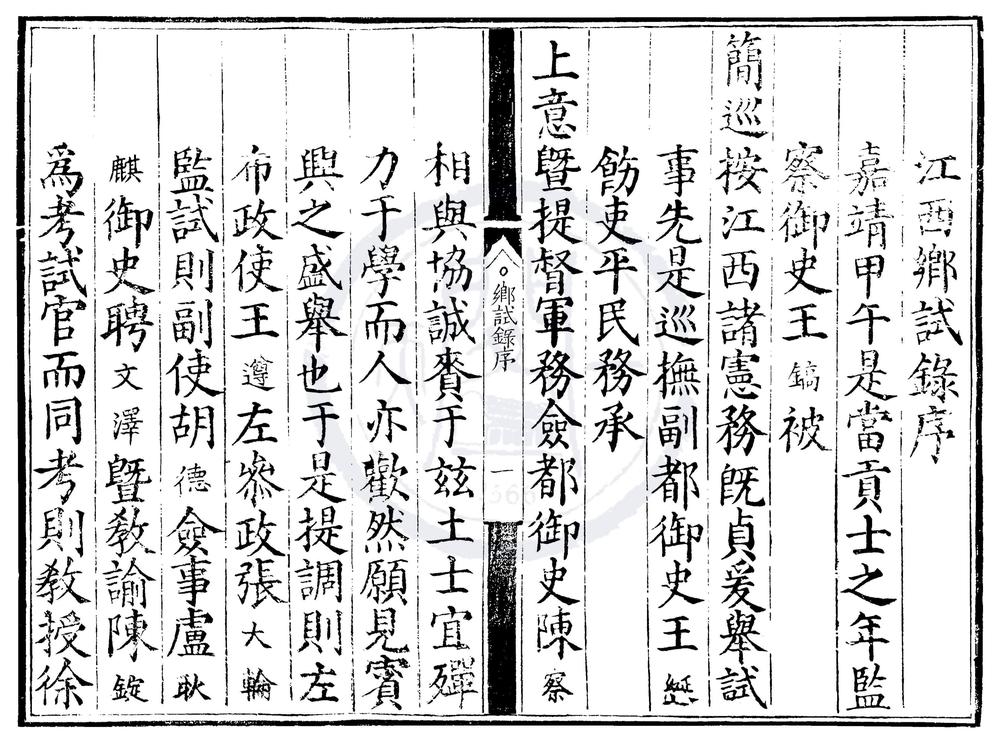 江西鄉試錄序
嘉靖甲午是當貢士之年監
察御史王鎬被
簡巡按江西諸憲務旣貞爰舉試
事先是巡撫副都御史王
飭吏平民務承
上意暨提督軍務僉都御史陳察
鄉試錄序
一
相與協誠賚于玆土士宜殫
力于學而人亦歡然願見賓
興之盛舉也于是提調則左
布政使王遵左叅政張大輪
監試則副使胡德僉事盧耿
麒御史聘文澤暨敎諭陳錠
爲考試官而同考則敎授徐